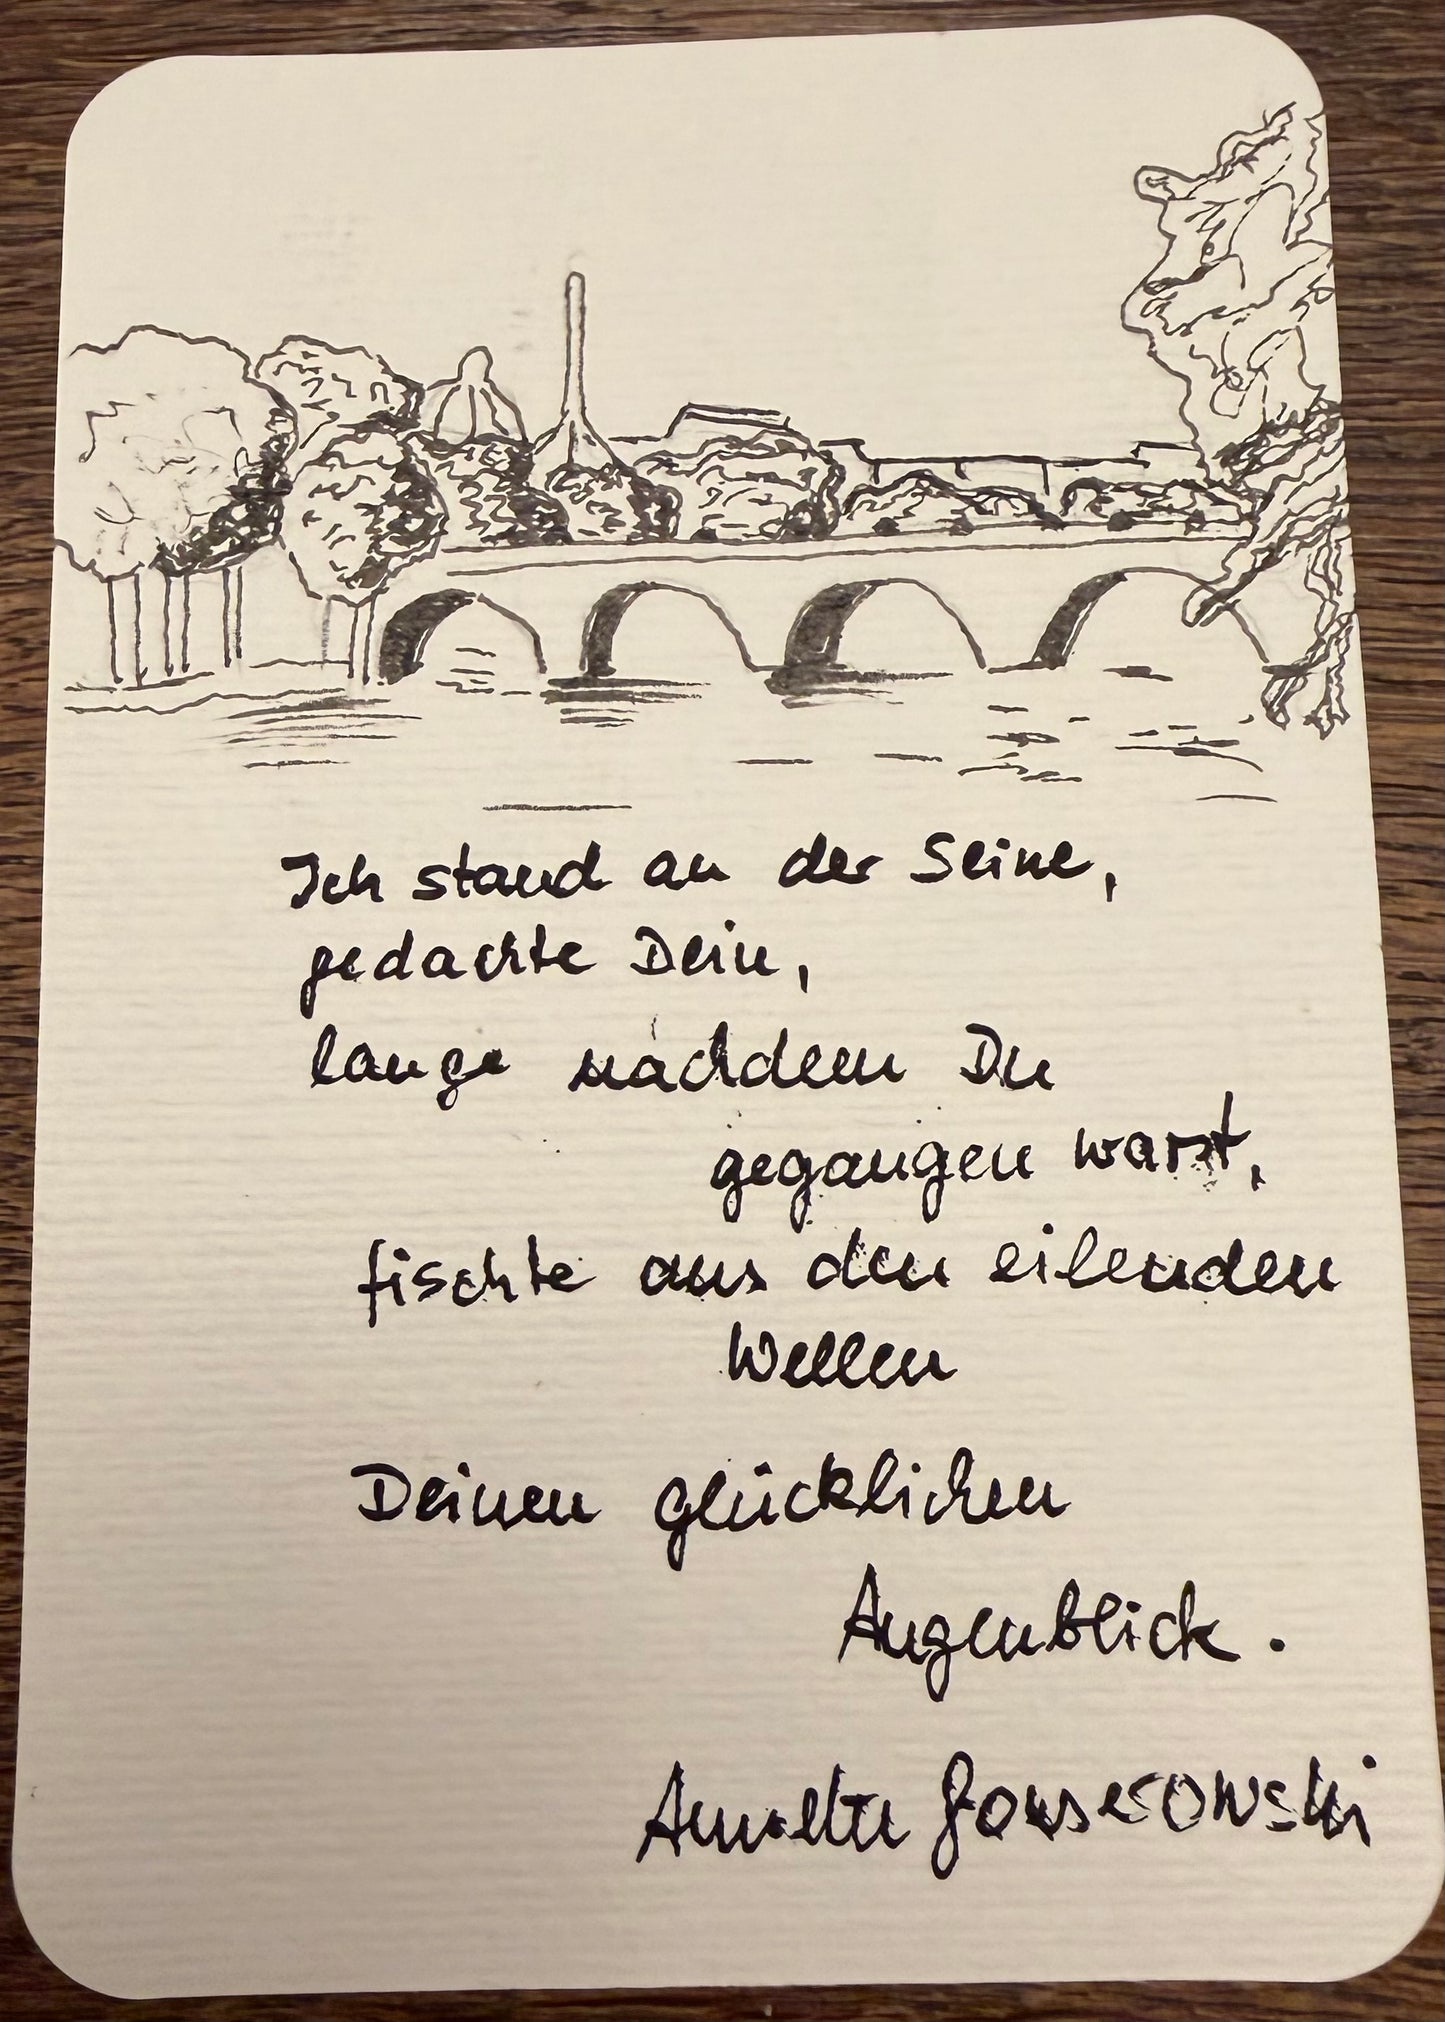 Ich stand an der Seine,
gedachte Dein,
lange nachdem Du
gegangen warst,
fischte aus den eilenden
Wellen
Deinen glücklichen
Augenblick.
Annette Gonserowski